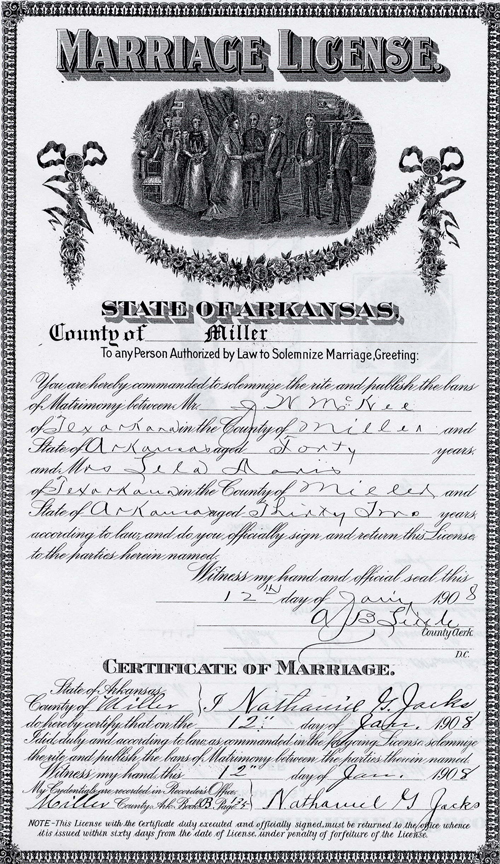 MARRIAGE LICENSE.
STATE OF ARKANSAS.
County of Miller
To any Person Authorized by Law to Solemnize Marriage, Greeting:
You are hereby commanded to solemnize the rite and publish the bans
of Matrimony between Mr. J W McKee
of Texarkana in the County of Miller and
State of Arkansas aged Forty years
and Mrs Lela Davis
of Texarkana in the County of Miller and
State of Arkansas aged Thirty Two years
according to law, and do you officially sign and return this License
to the parties herein named.
Witness my hand and official seal this
12th day of Jany 1908
A B
County Clerk
D.C.
CERTIFICATE OF MARRIAGE.
State of Arkansas,
County of Miller } I Nathaniel G. Jacks
do hereby certify that on the 12" day of Jan. 1908
I did, duly and according to law, as commanded in the foregoing License, solemnize
the rite and publish the bans of Matrimony between the parties therein named.
Witness my hand, this 12" day of Jan. 1908
My Credentials are recorded in Recorder's Office
Miller County Ark. Book B Page Nathaniel G Jacks
NOTE - This License with the Certificate duly executed and officially signed, must be returned to the office whence
it is issued within sixty days from the date of License, under penalty of forfeiture of the License.